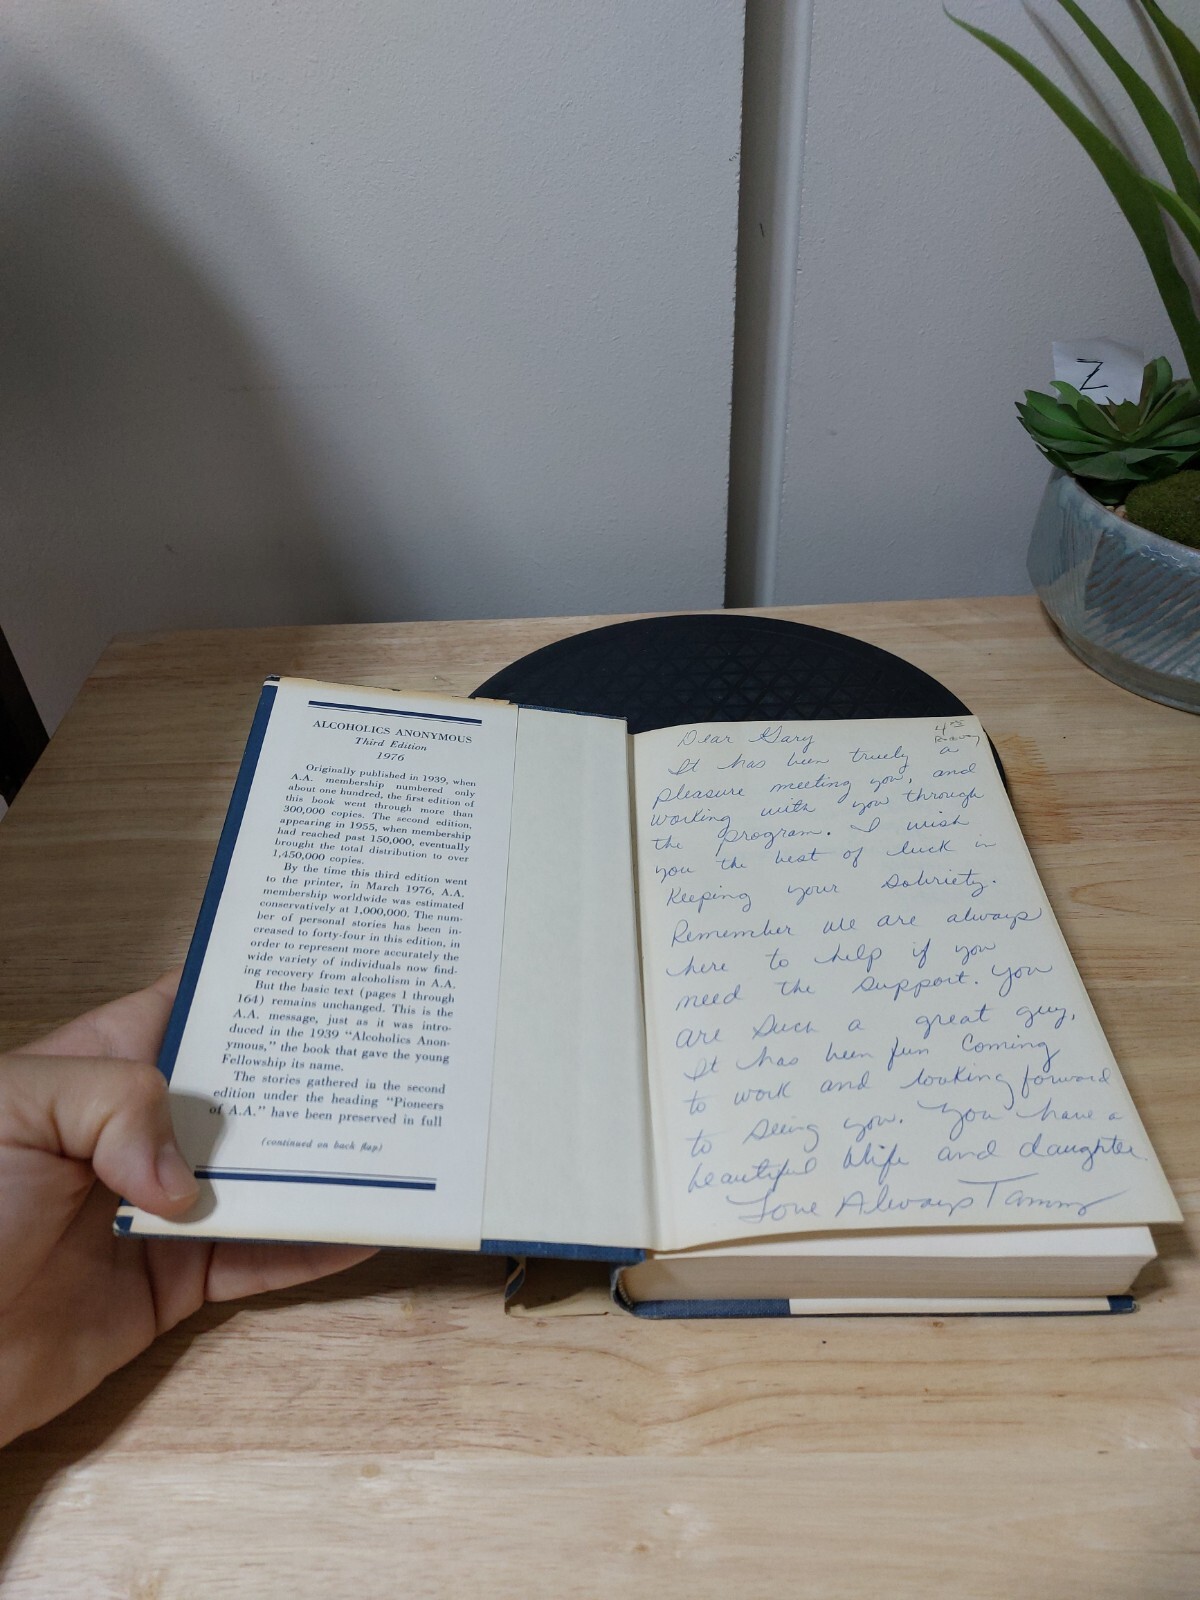 ALCOHOLICS ANONYMOUS
Third Edition
1976
Originally published in 1939, when
A.A. membership numbered only
about one hundred, the first edition of
this book went through more than
300,000 copies. The second edition,
appearing in 1955, when membership
had reached past 150,000, eventually
brought the total distribution to over
1,450,000 copies.
By the time this third edition went
to the printer, in March 1976, A.A.
membership worldwide was estimated
conservatively at 1,000,000. The num-
ber of personal stories has been in-
creased to forty-four in this edition, in
order to represent more accurately the
wide variety of individuals now find-
ing recovery from alcoholism in A.A.
But the basic text (pages 1 through
164) remains unchanged. This is the
A.A. message, just as it was intro-
duced in the 1939 "Alcoholics Anon-
ymous," the book that gave the young
Fellowship its name.
The stories gathered in the second
edition under the heading "Pioneers
of A.A." have been preserved in full
(continued on back flap)
Dear Gary
It has been truely a
pleasure meeting you, and
working with you through
the program. I wish
you the best of luck in
Keeping your Sobriety.
Remember we are always
here to help if you
need the Support. You
are Such a great guy,
It has been fun Coming
to work and looking forward
to Seeing you. You have a
beautiful Wife and daughter.
Love Always Tammy
Z